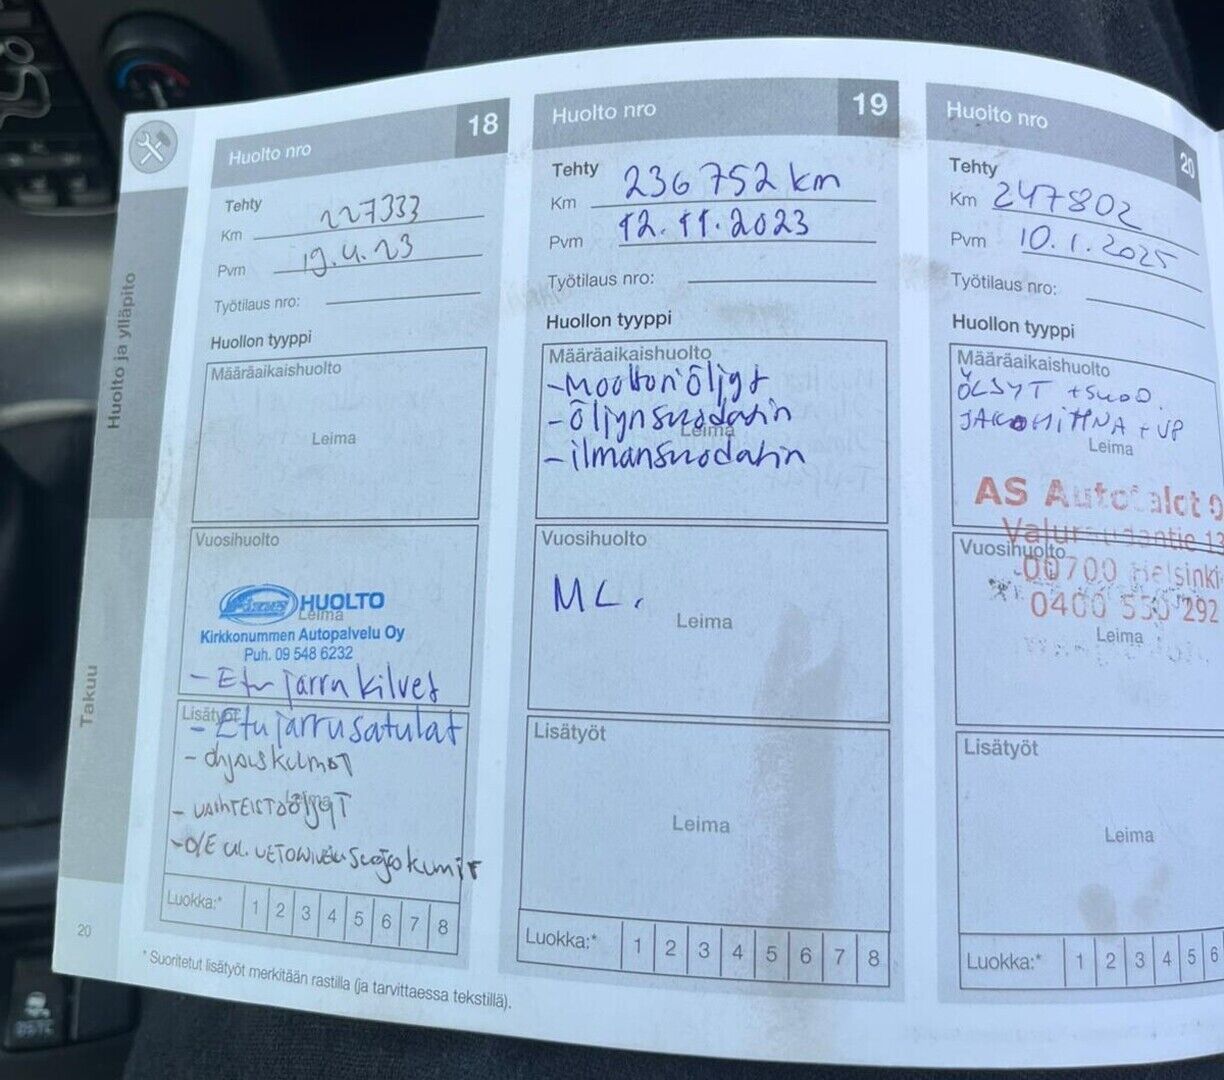 Huolto ja ylläpito
Takuu
20
Huolto nro 18
Tehty
Km 227333
Pvm 19.4.23
Työtilaus nro:
Huollon tyyppi
Määräaikaishuolto
Leima
Vuosihuolto
HUOLTO
Leima
Kirkkonummen Autopalvelu Oy
Puh. 09 548 6232
- Etu jarru kilvet
Lisätyöt
- Etu jarrusatulat
- ohjauskulmat
- VAIHTEISTOÖljyt
- O/E ul. VETONIVELen Suojakumit
Luokka:* 1 2 3 4 5 6 7 8
* Suoritetut lisätyöt merkitään rastilla (ja tarvittaessa tekstillä).
Huolto nro 19
Tehty
Km 236 752 km
Pvm 12.11.2023
Työtilaus nro:
Huollon tyyppi
Määräaikaishuolto
- Moottoriöljyt
- öljynsuodatin
Leima
- ilmansuodatin
Vuosihuolto
ML.
Leima
Lisätyöt
Leima
Luokka:* 1 2 3 4 5 6 7 8
Huolto nro 20
Tehty
Km 247802
Pvm 10.1.2025
Työtilaus nro:
Huollon tyyppi
Määräaikaishuolto
ÖLJYT + SUOD.
JAKOHIHNA + VP
Leima
AS Autotalot
13
Vuosihuolto
00700 Helsinki
0400 550 292
Leima
Lisätyöt
Leima
Luokka:* 1 2 3 4 5 6
DSTC